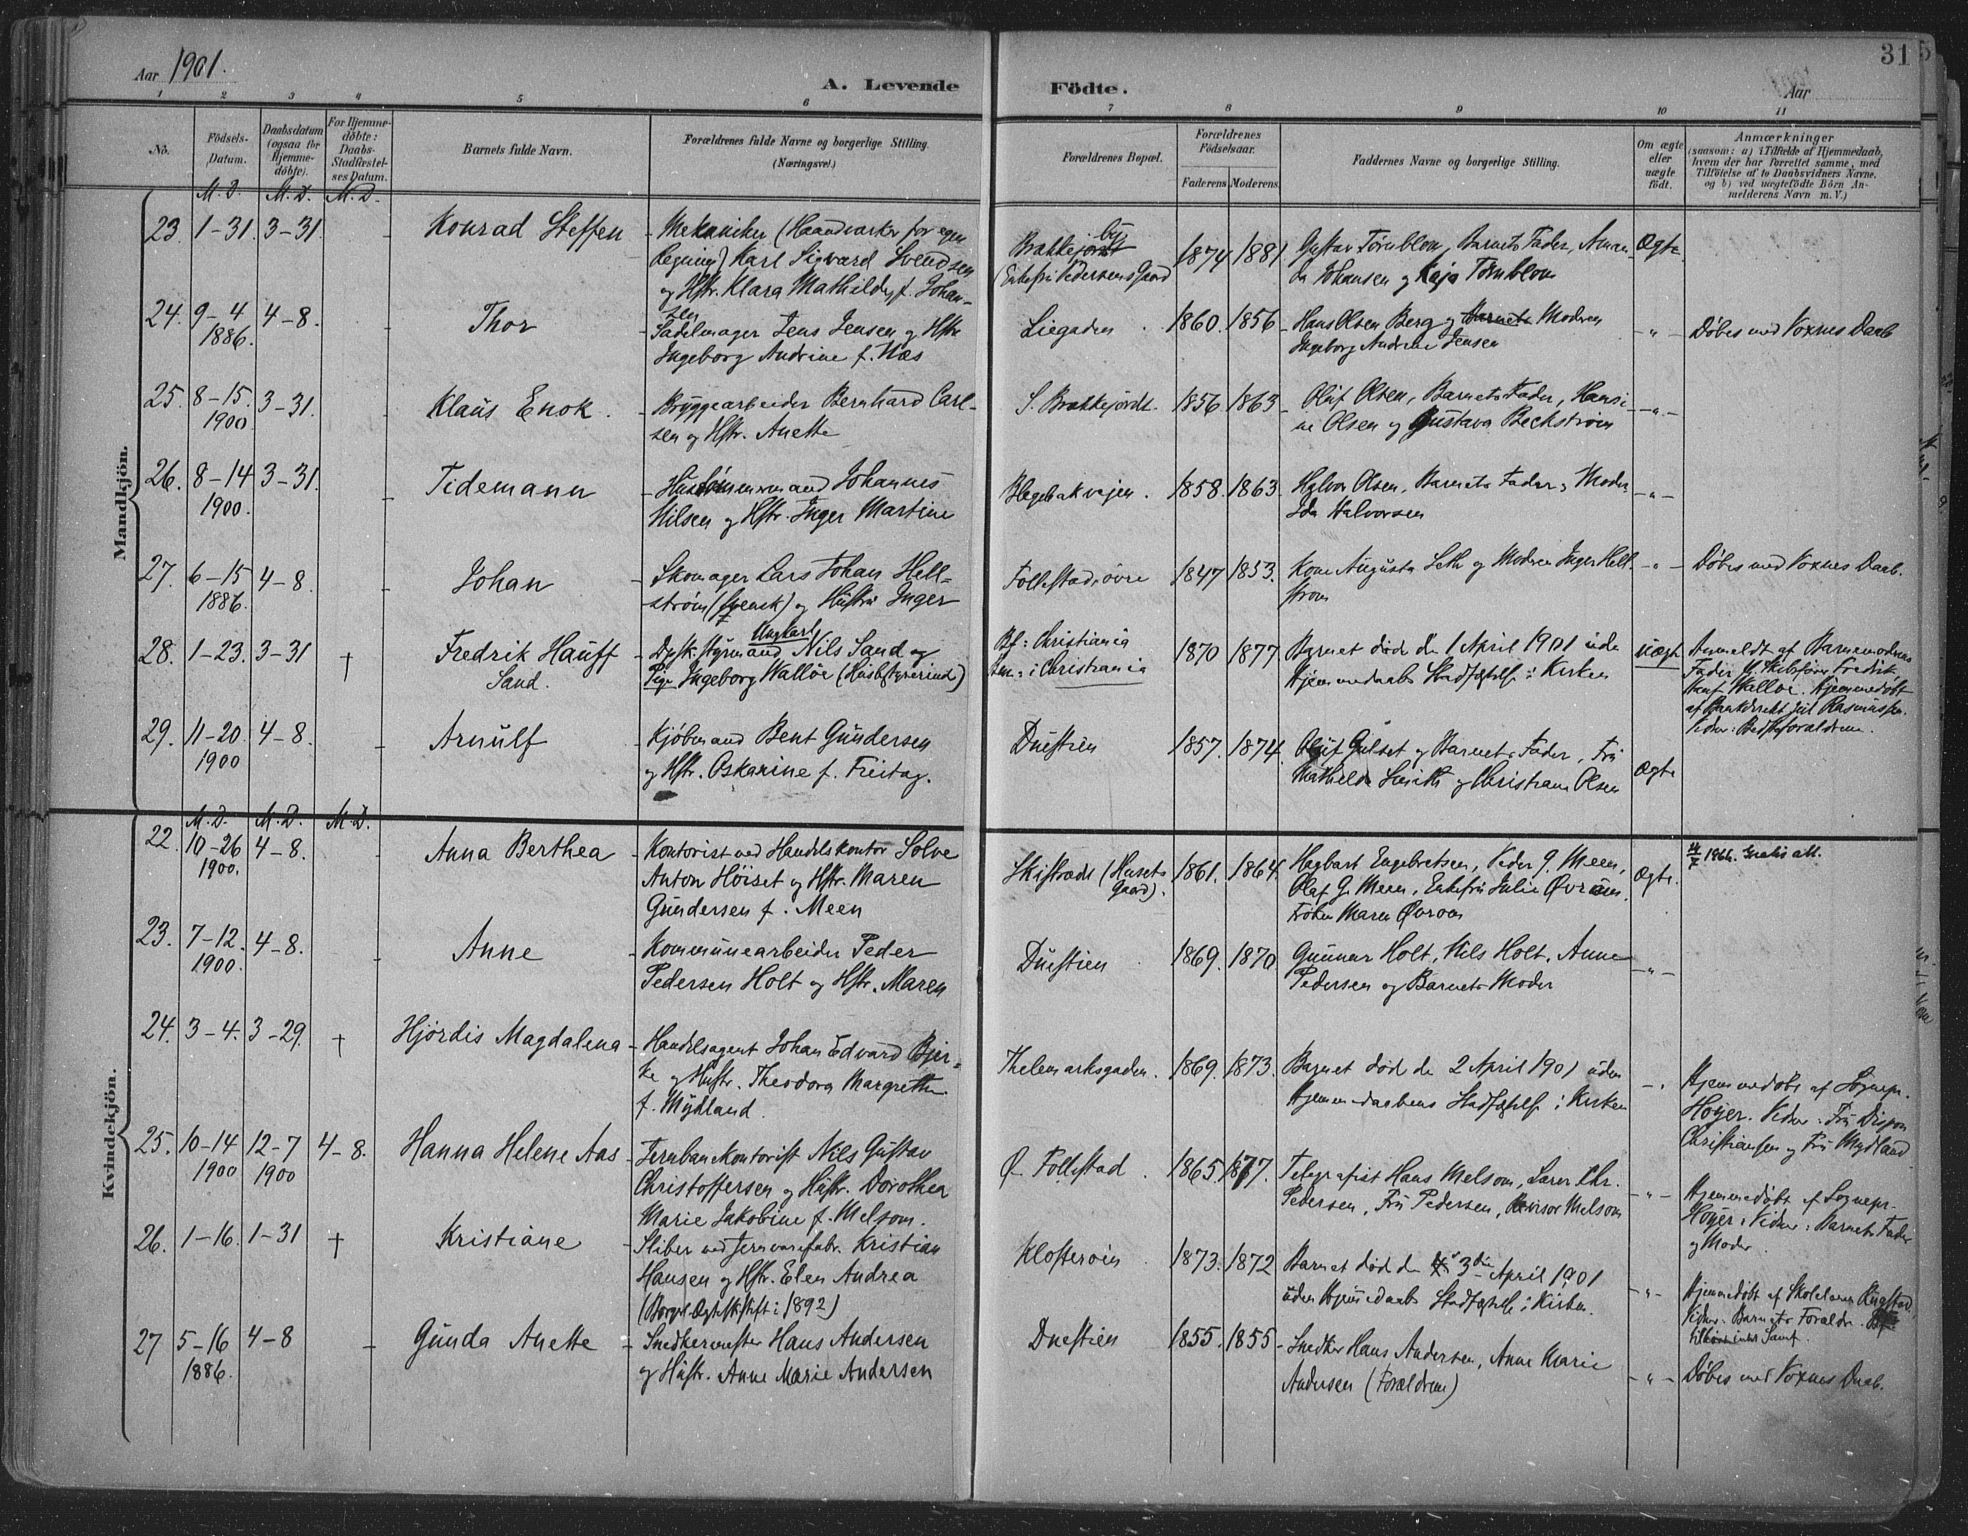 Aar 1901.
A. Levende
Födte.
31
Aar
1 2 3 4 5 6 7 8 9 10 11
No.
Födsels-
Datum.
Daabsdatum
(ogsaa for
Hjemme-
døbte).
For Hjemme-
døbte:
Daabs-
Stadfæstel-
ses Datum.
Barnets fulde Navn.
Forældrenes fulde Navne og borgerlige Stilling.
(Næringsvei.)
Forældrenes Bopæl.
Forældrenes
Födselsaar.
Faderens Moderens
Faddernes Navne og borgerlige Stilling.
Om ægte
eller
uægte
födt.
Anmærkninger
(saasom: a) i Tilfælde af Hjemmedaab,
hvem der har forrettet samme, med
Tilföielse af to Daabsvidners Navne,
og b) ved uægtefödte Börn An-
melderens Navn m. V.)
M. D. M. D. M. D.
Mandkjön.
23. 1-31. 3-31. - Konrad Steffen
- Mekaniker (Haandværker for egen
Regning) Karl Sigvard Svendsen
og Hstr. Klara Mathilde, f. Johan-
sen
Brækkejordet
(Enkefru Pedersens Gaard
1874 1881
Gustav Törnblom, Barnets Fader, Aman
da Johansen og Kaja Törnblom
Ægte
24. 9-4 1886. 4-8. - Thor
- Sadelmager Jens Jensen og Hstr.
Ingeborg Andrine f. Næs
Liegaden. 1860. 1856
- Hans Olsen Berg og Barnets Moderen
Ingeborg Andrine Jensen
- " - Døbes ved Voxnes Daab
25. 8-15. 1900. 3-31. Klaus Enok.
- Bryggearbeider Bernhard Carl-
sen og Hstr. Anette
S. Brækkejordet. 1856 1863
Oluf Olsen, Barnets Fader, Hansi
ne Olsen og Gustava Beckström
- " -
26. 8-14 1900. 3-31. - Tidemann
- Johannes
Nilsen og Hstr. Inger Martine
Hagebakvejen. 1858. 1863.
Halvor Olsen, Barnets Fader, Moder
Ida Halvorsen
- " -
27. 6-15 1886. 4-8. - Johan
- Skomager Lars Johan Hell-
ström (svensk) og Hustru Inger
Follestad, övre 1847 1853.
Kone Augusta Seth og Modren Inger Hell
ström
- " - Døbes ved Voxnes Daab.
28. 1-23. 3-31 † Fredrik Hauff
Sand.
Ungkarl
- Styrmand Nils Sand og
Pige Ingeborg Walløe (Husbestyrerinde)
Bf: Christiania
: i Christiania
1870 1877
Barnet død den 1 April 1901 uden
Hjemmedaabs Stadfæstelse i Kirken
uægte
Anmeldt af Barnemoderens
Fader Fredrik
Hauf Walløe. Hjemmedøbt
af Rasmussen.
Vidner: Bedsteforældrene.
29. 11-20. 1900 4-8. - Arnulf
- Kjøbmand Bent Gundersen
og Hstr. Oskarine f. Freitag.
Duestien 1857. 1874.
Oluf Gulset og Barnets Fader, Fru
Mathilde Smith og Christiane Olsen
Ægte
M. D. M. D. M. D.
Kvindekjön.
22. 10-26 1900. 4-8. - Anna Berthea
- Kontorist ved Handelskontor Solve
Anton Höiset og Hstr. Maren
Gundersen f. Meen
Skistredt (Husets
Gaard). 1861. 1864
Hagbart Engebretsen, Peder G. Meen,
Olaf G. Meen, Enkefru Julie Øvrum,
Frøken Maren Øvrum
Ægte.
1966. Gratis att.
23. 7-12. 1900. 4-8. Anne
- Kommunearbeider Peder
Pedersen Holt og Hstr. Maren
Duestien. 1869. 1870
Gunnar Holt, Nils Holt, Anne
Pedersen og Barnets Moder
- " -
24. 3-4. 3-29. † Hjørdis Magdalena
- Handelsagent Johan Edvard Bjer-
ke og Hustr. Theodora Margrethe
f. Mydland.
Thelemarksgaden. 1869. 1873.
Barnet død den 2 April 1901 uden
Hjemmedaabens Stadfæstelse i Kirken
- "
Hjemmedøbt af Sognepr.
Høyer. Vidner: Fru Dispon
Christiansen og Fru Mydland
25. 10-14 1900 12-7 1900 4-8. Hanna Helene Aas
- Jernbanekontorist Nils Gustav
Christoffersen og Hustr. Dorothea
Marie Jakobine f. Melsom.
Ø. Follestad. 1865. 1877.
Telegrafist Hans Melsom, Lærer Chr.
Pedersen, Fru Pedersen, Revisor Melsom
- " -
Hjemmedøbt af Sognepr.
Høyer. Vidner: Barnets Fader
og Moder.
26. 1-16. 1-31 † Kristiane
- Sliber ved Jernvarefabr. Kristian
Hansen og Hstr. Elen Andrea
(Borgerl. Ægteskab stift. i 1892)
Klosterøien. 1873. 1872
Barnet død den 3die April 1901
uden Hjemmedaabs Stadfæstelse i Kirken.
- " -
Hjemmedøbt af Skolelærer Ringstad.
Vidner. Barnets Forældre.
27 5-16 1886. 4-8 - Gunda Anette
- Snedkermester Hans Andersen
og Hustr. Anne Marie Andersen
Duestien 1855. 1855
- Snedker Hans Andersen, Anne Marie
Andersen (Forældrene)
- " - Døbes ved Voxnes Daab.